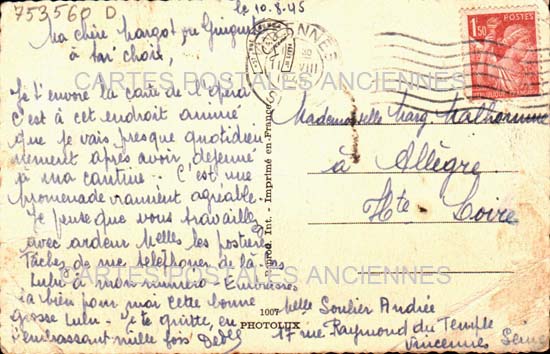 753560 D
le 10.8.45
Ma chère Margot, ou Guigui
à ton choix,
Je t'envoie la carte de l'opéra
C'est à cet endroit animé
que je vais presque quotidien-
nement après avoir déjeuné
à ma cantine. C'est une
promenade vraiment agréable.
Je pense que vous travaillez
avec ardeur Melles les postières
Tâchez de me téléphoner de là
Lulu à mon numéro - Embrasse
la bien pour moi cette bonne
grosse Lulu - Je te quitte, en
t'embrassant mille fois Dédée
CARTES POSTALES ANCIENNES
CARTES POSTALES ANCIENNES
Reprod. Int. - Imprimé en France
1007
PHOTOLUX
VINCENNES
VIII
POSTES
1F50
Mademoiselle Marg Malhomme
à Allègre
Hte Loire
Melle Soulier Andrée
17 rue Raymond du Temple
Vincennes Seine